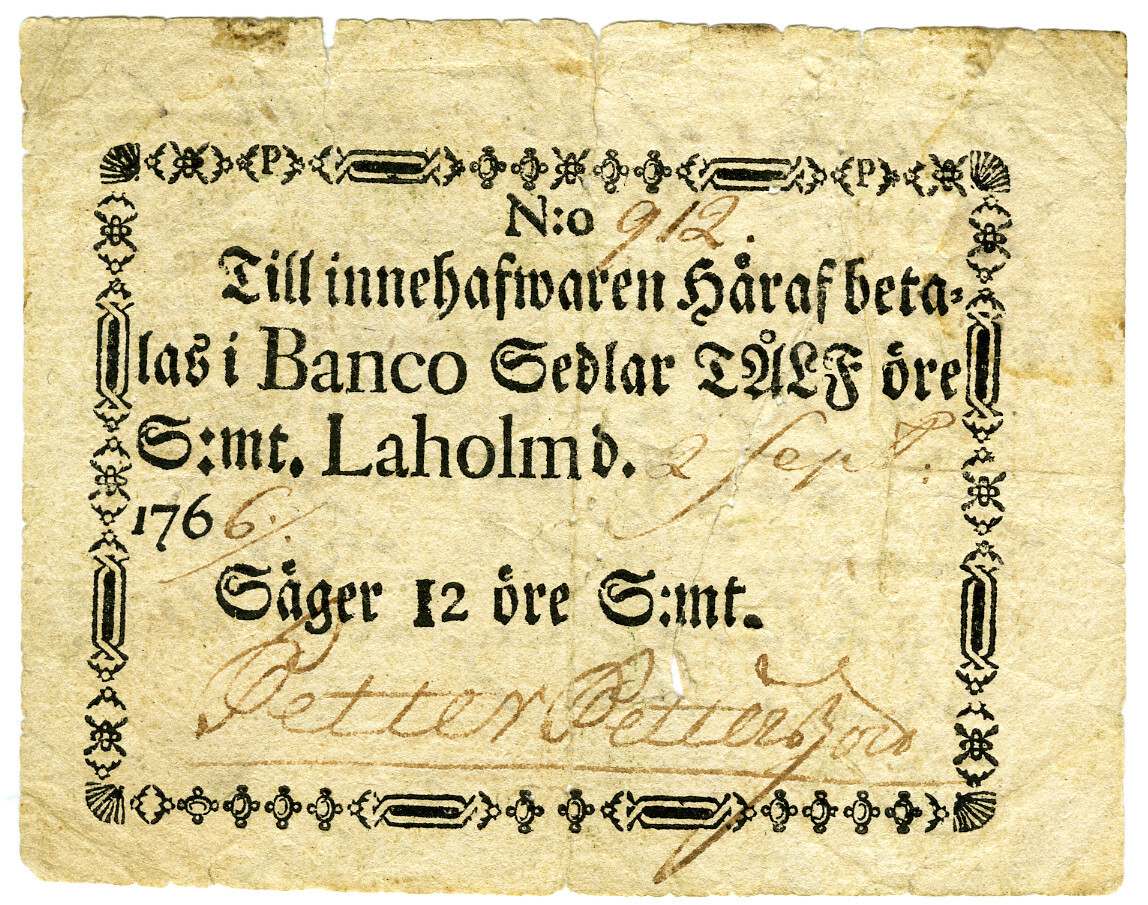 P P
N:o 912.
Till innehafwaren Håraf beta-
las i Banco Sedlar TÅLF öre
S:mt. Laholm d. 2 Sept.
1766.
Säger 12 öre S:mt.
Petter Pettersson